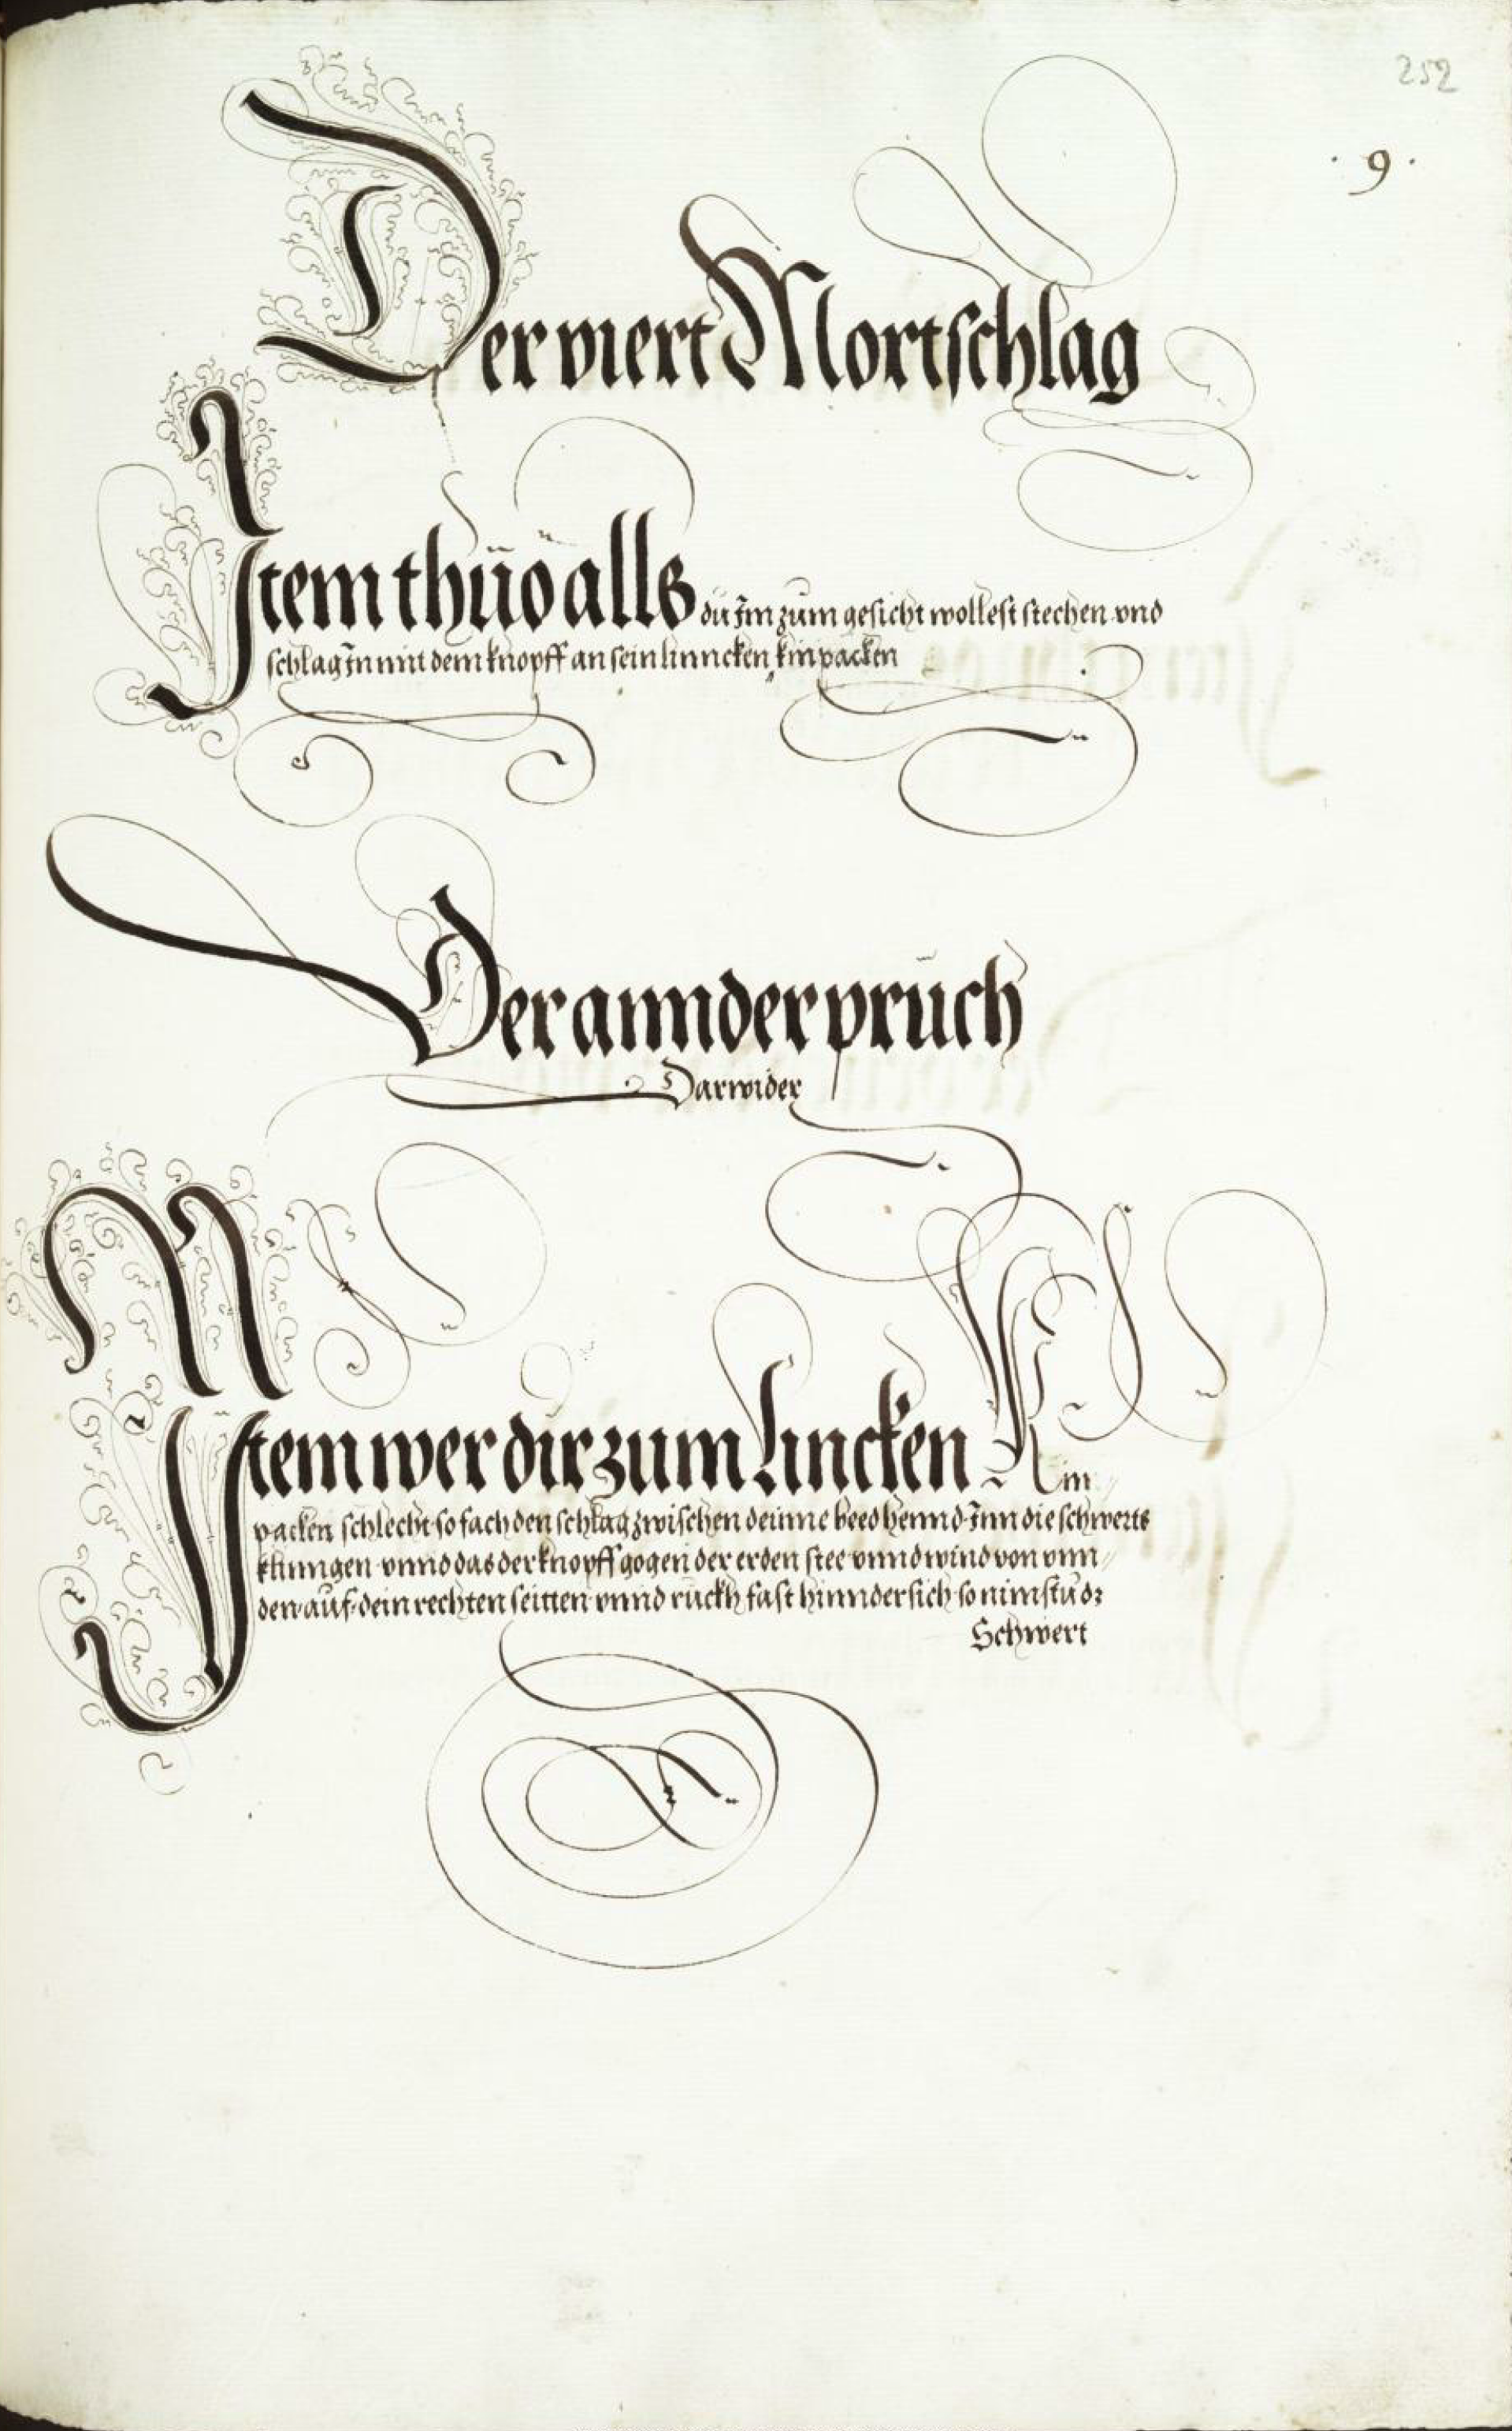 252
. 9 .
Der viert Mortschlag
Item thuo alls du Im zum gesicht wollest stechen vnd
schlag In mit dem knopff an sein linncken kinpacken
Der annder pruch
Darwider
Item wer dir zum lincken Kin
packen schlecht so fach den schlag zwischen deinne beed hennd Inn die schwerts
klingen vnnd das der knopff gogen der erden stee vnnd wind von vnn
den auf dein rechten seitten vnnd ruckh fast hinndersich so nimstu dz
Schwert